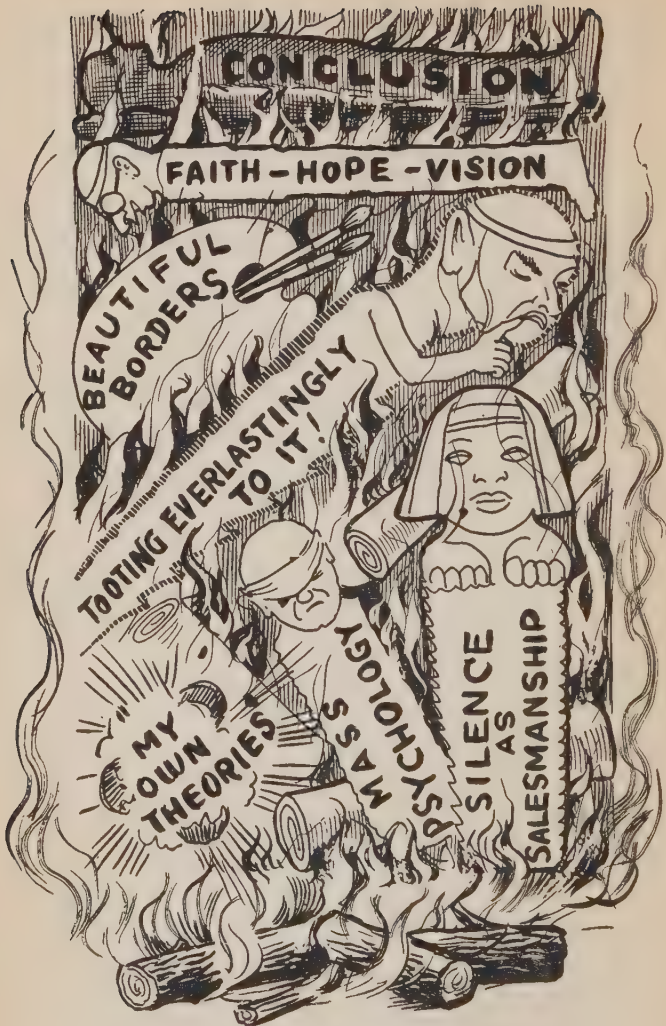 CONCLUSION
FAITH-HOPE-VISION
BEAUTIFUL
BORDERS
TOOTING EVERLASTINGLY
TO IT!
"MY
OWN
THEORIES
MASS
PSYCHOLOGY
SILENCE
AS
SALESMANSHIP